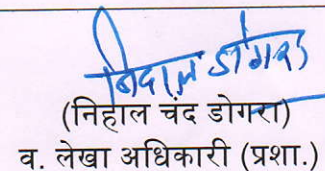 निहाल डोगरा
(निहाल चंद डोगरा)
व. लेखा अधिकारी (प्रशा.)